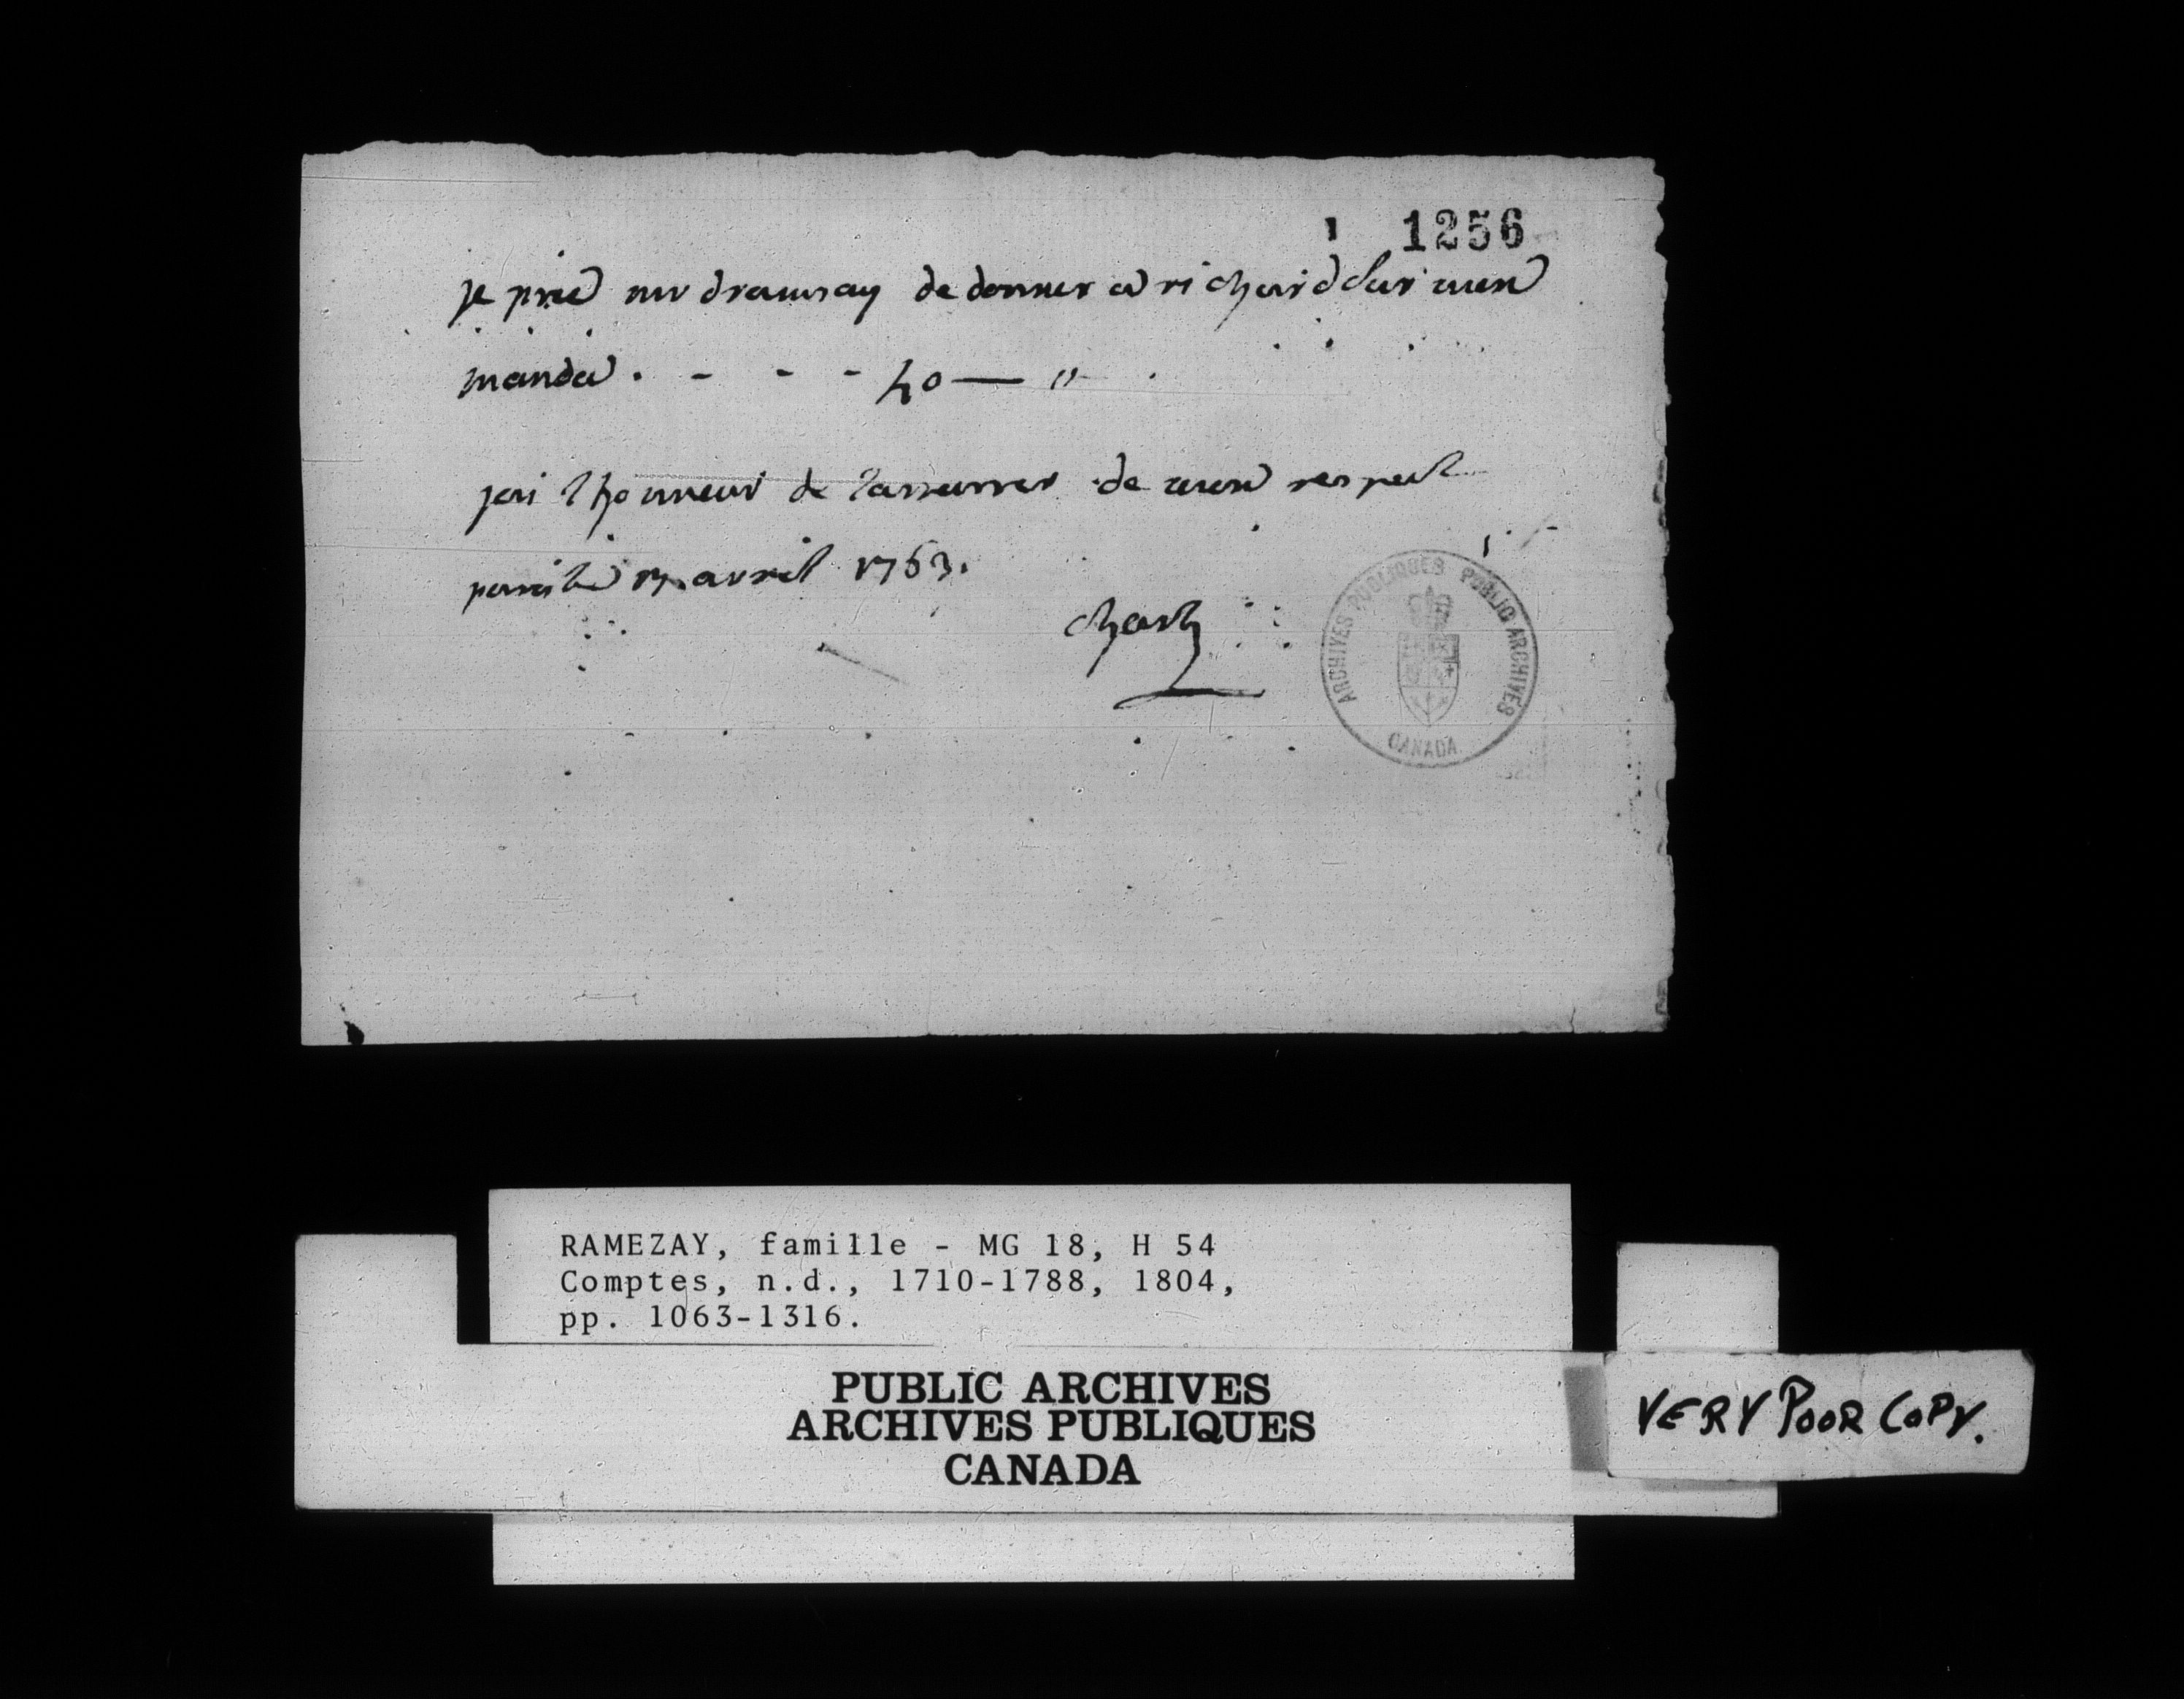 1256
je prie mr dramsay de donner a richard sur mon
manda . - - - 40 — "
jai lhonneur de lassurer de mon respect
avril 1763.
ARCHIVES PUBLIQUES PUBLIC ARCHIVES
CANADA
RAMEZAY, famille - MG 18, H 54
Comptes, n.d., 1710-1788, 1804,
pp. 1063-1316.
PUBLIC ARCHIVES
ARCHIVES PUBLIQUES
CANADA
VERY POOR COPY.